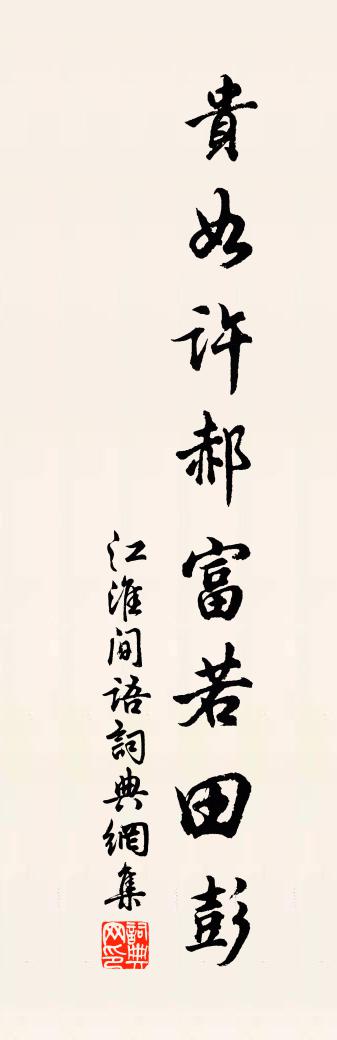 貴如許郝富若田彭
江淮間語詞典網集
詞典网印